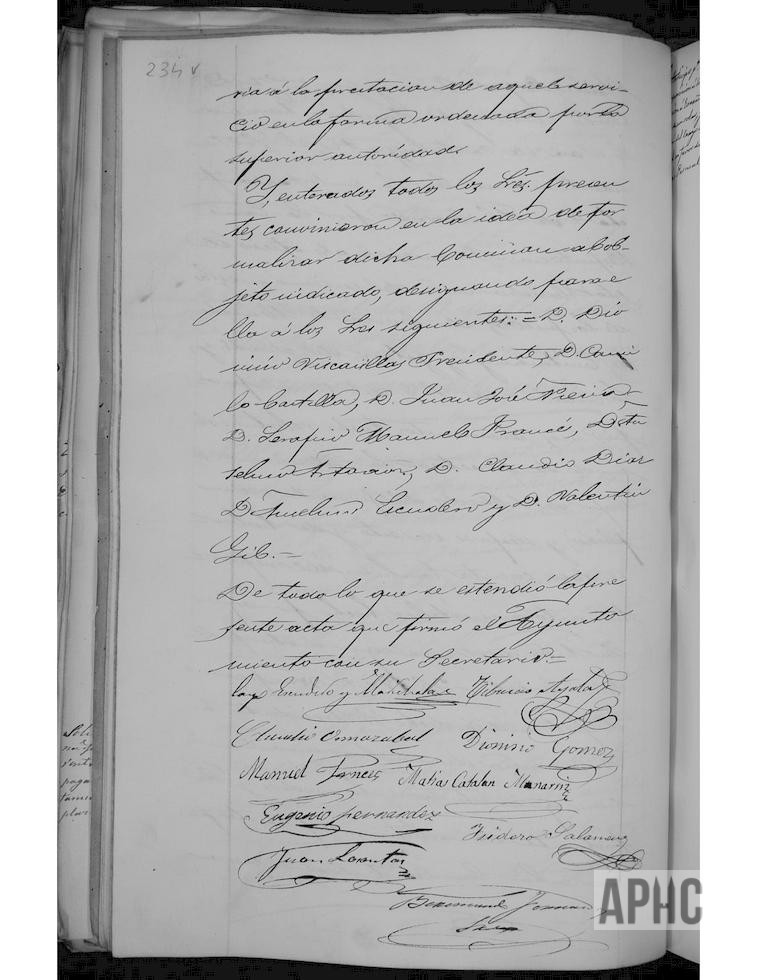 234 v
ria á la prestacion de aquel servi-
cio en la forma ordenada por la
superior autoridad.
Y, enterados todos los Sres. presen
tes convinieron en la idea de for
malizar dicha Comision al ob-
jeto indicado, designando para e
lla á los Sres siguientes: = D. Dio
nisio Viscasillas Presidente, D. Cami
lo Castilla, D. Juan José
D. Serafin Manuel D.
selmo D. Claudio Diaz
D. Anselmo Escudero y D. Valentin
Gil. =
De todo lo que se estendió la pre
sente acta que firmó el Ayunta
miento con su Secretario =
Escudero y Tiburcio Ayala
Claudio Omazabal Dionisio Gomez
Manuel Matias Catalan
Eugenio Fernandez
Isidoro
Juan
APHC